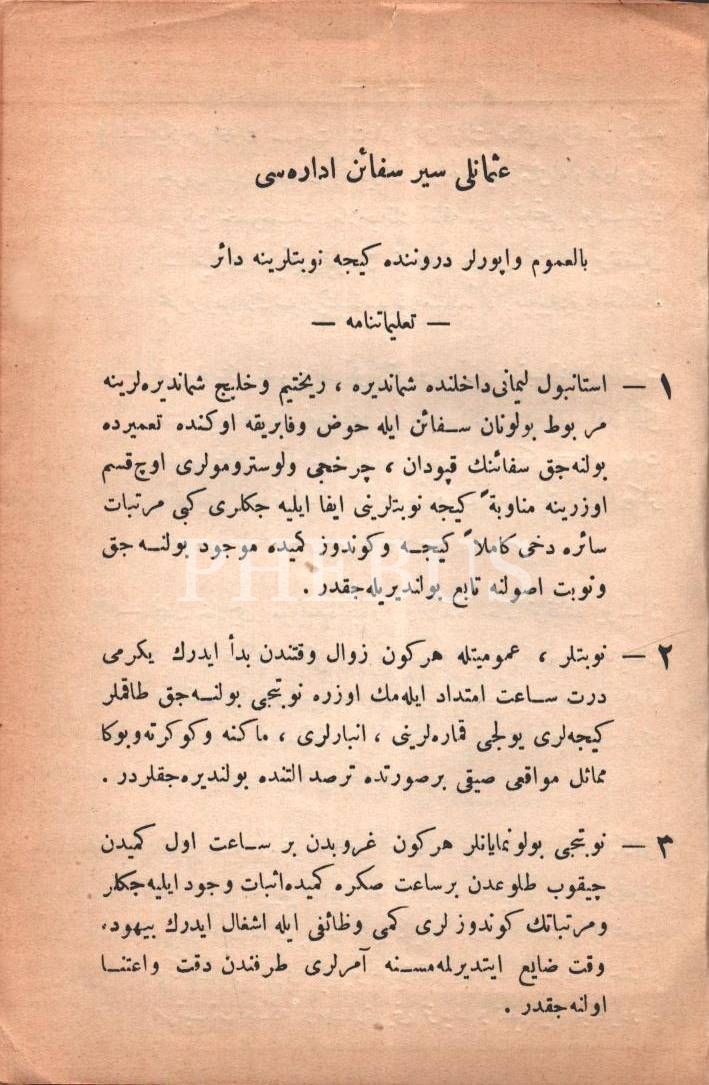 عثمانلی سیر سفائن اداره‌سی
بالعموم واپورلر دروننده کیجه نوبتلرینه دائر
— تعلیماتنامه —
١ — استانبول لیمانی داخلنده شماندیره ، ریختیم و خلیج شماندیره‌لرینه
مربوط بولونان سفائن ایله حوض وفابریقه اوکنده تعمیرده
بولنه‌جق سفائنك قپودان ، چرخجی ولوسترومولری اوچ قسم
اوزرینه مناوبةً کیجه نوبتلرینی ایفا ایلیه جکلری کبی مرتبات
سائره دخی کاملاً کیجه وکوندوز کمیده موجود بولنه جق
ونوبت اصولنه تابع بولندیریله‌جقدر .
PHEBUS
٢ — نوبتلر ، عمومیتله هرکون زوال وقتندن بدأ ایدرك یکرمی
درت ساعت امتداد ایله‌مك اوزره نوبتجی بولنه‌جق طاقملر
کیجه‌لری یولجی قماره‌لرینی ، انبارلری ، ماکنه وکوکرته وبوکا
مماثل مواقعی صیقی برصورتده ترصد التنده بولندیره‌جقلردر .
٣ — نوبتجی بولونمایانلر هرکون غروبدن بر ساعت اول کمیدن
چیقوب طلوعدن برساعت صکره کمیده اثبات وجود ایلیه‌جکلر
ومرتباتك کوندوزلری کمی وظائفی ایله اشغال ایدرك بیهوده
وقت ضایع ایتدیرلمه‌مسنه آمرلری طرفندن دقت واعتنا
اولنه‌جقدر .